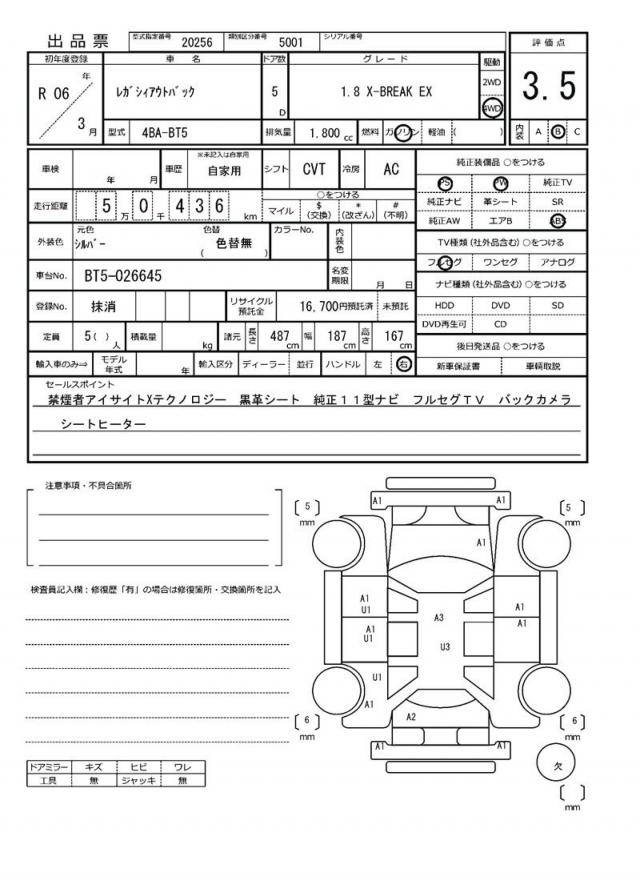 出品票
型式指定番号 20256 類別区分番号 5001 シリアル番号
評価点
3.5
初年度登録 車名 ドア数 グレード 駆動
R 06 年 3 月
ﾚｶﾞｼｨｱｳﾄﾊﾞｯｸ
5 D
1.8 X-BREAK EX
2WD
4WD
型式 4BA-BT5 排気量 1.800 cc 燃料 ガソリン 軽油 ( )
内装 A B C
車検 年 月 車歴 ※未記入は自家用 自家用 シフト CVT 冷房 AC
走行距離 5 万 0 千 4 3 6 km
○をつける
マイル $(交換) *(改ざん) #(不明)
外装色 元色 ｼﾙﾊﾞｰ 色替 ( 色替無 ) カラーNo. 内装色
車台No. BT5-026645 名変期限 月 日
登録No. 抹消 リサイクル預託金 16,700円預託済 未預託
定員 5( )人 積載量 kg 諸元 長さ 487cm 幅 187cm 高さ 167cm
輸入車のみ⇒ モデル年式 年 輸入区分 ディーラー 並行 ハンドル 左 右
純正装備品 ○をつける
PS PW 純正TV
純正ナビ 革シート SR
純正AW エアB ABS
TV種類 (社外品含む) ○をつける
フルセグ ワンセグ アナログ
ナビ種類 (社外品含む) ○をつける
HDD DVD SD
DVD再生可 CD
後日発送品 ○をつける
新車保証書 車輌取説
セールスポイント
禁煙者アイサイトXテクノロジー 黒革シート 純正11型ナビ フルセグTV バックカメラ
シートヒーター
注意事項・不具合箇所
検査員記入欄：修復歴「有」の場合は修復箇所・交換箇所を記入
ドアミラー キズ ヒビ ワレ
工具 無 ジャッキ 無
A1 A1
5 mm
5 mm
A1
A1
U1
A1
A1
U1
A1
A3
U3
U1
A1
A2
6 mm
6 mm
A1 A1
欠
mm